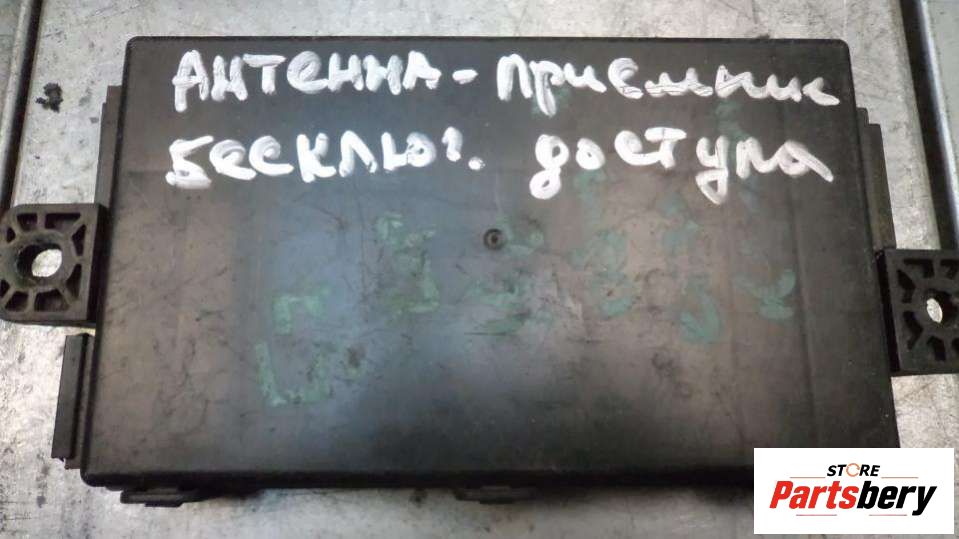 АНТЕННА-приЕмник
бесключ. доступа
STORE
Partsbery